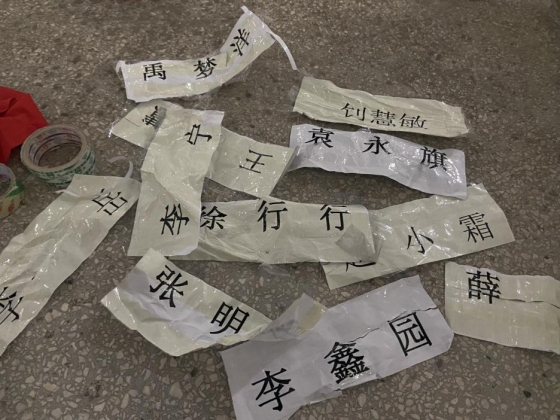 禹梦洋
慧敏
袁永旗
宁
王
李
徐行行
小霜
岳
李
张明
薛
李鑫园